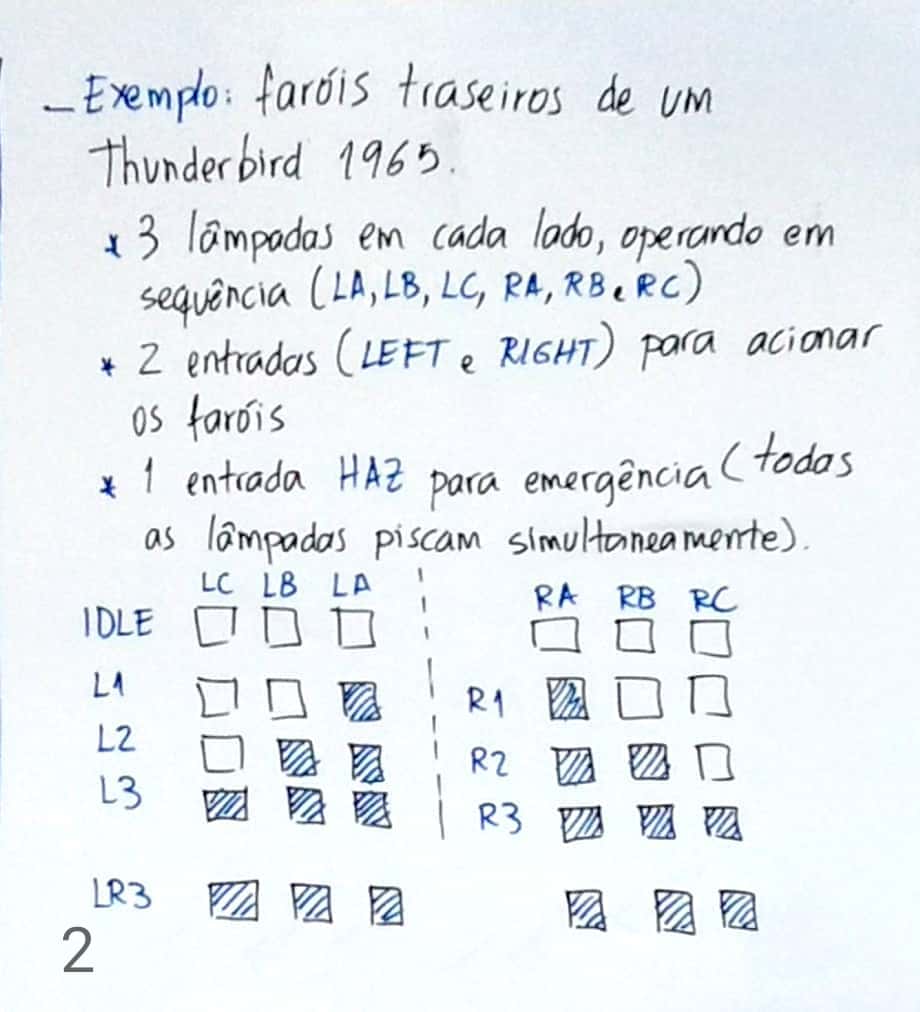 - Exemplo: faróis traseiros de um
Thunderbird 1965.
* 3 lâmpadas em cada lado, operando em
sequência (LA, LB, LC, RA, RB e RC)
* 2 entradas (LEFT e RIGHT) para acionar
os faróis
* 1 entrada HAZ para emergência (todas
as lâmpadas piscam simultaneamente).
LC LB LA RA RB RC
IDLE
L1 R1
L2 R2
L3 R3
LR3
2